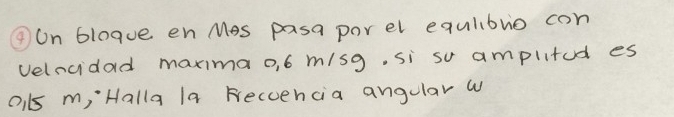 ④ Un bloque en Mos pasa por el equlibrio con
velocidad maxima 0,6 m/sg . si su amplitud es
0,15 m, Halla la Frecuencia angular w